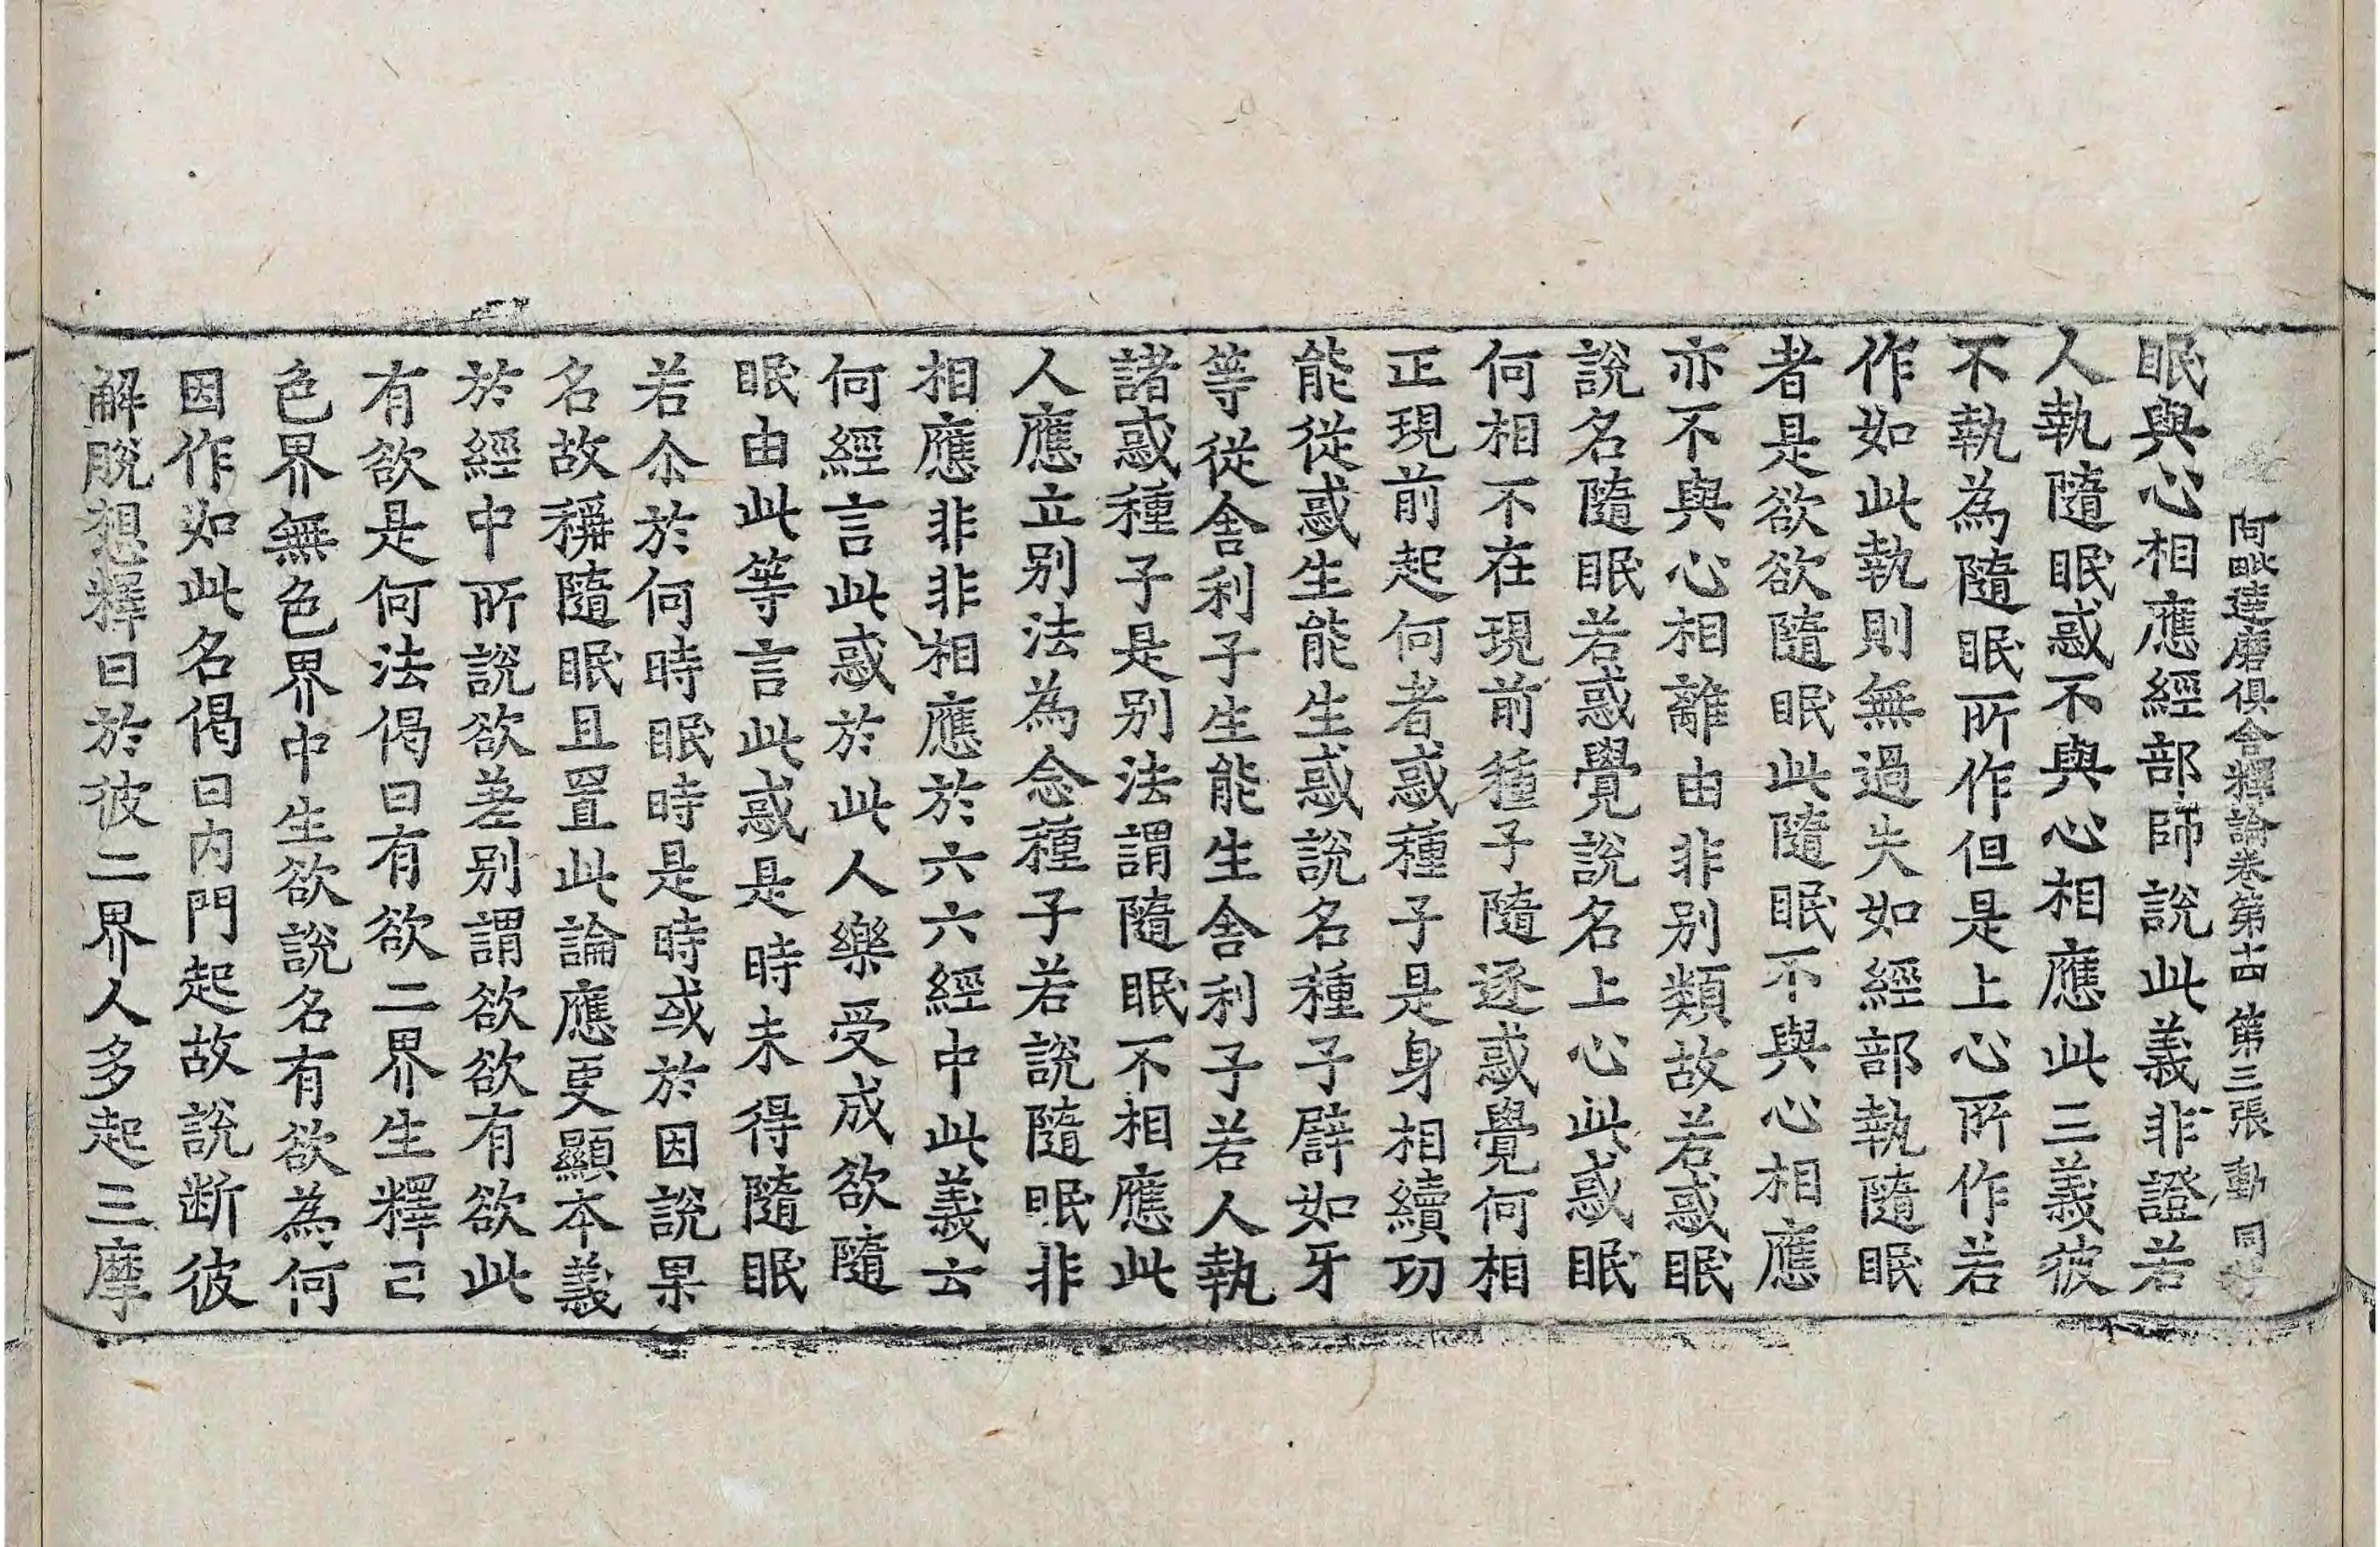 阿毗達磨俱舍釋論卷第十四 第三張 動 同
眠與心相應經部師說此義非證若
人執隨眠惑不與心相應此三義彼
不執為隨眠所作但是上心所作若
作如此執則無過失如經部執隨眠
者是欲欲隨眠此隨眠不與心相應
亦不與心相離由非別類故若惑眠
說名隨眠若惑覺說名上心此惑眠
何相不在現前種子隨逐惑覺何相
正現前起何者惑種子是身相續功
能從惑生能生惑說名種子辟如牙
等從舍利子生能生舍利子若人執
諸惑種子是別法謂隨眠不相應此
人應立別法為念種子若說隨眠非
相應非非相應於六六經中此義云
何經言此惑於此人樂受成欲隨
眠由此等言此惑是時未得隨眠
若尒於何時眠時是時或於因說果
名故稱隨眠且置此論應更顯本義
於經中所說欲差別謂欲欲有欲此
有欲是何法偈曰有欲二界生釋曰
色界無色界中生欲說名有欲為何
因作如此名偈曰內門起故說斷彼
解脫想釋曰於彼二界人多起三摩